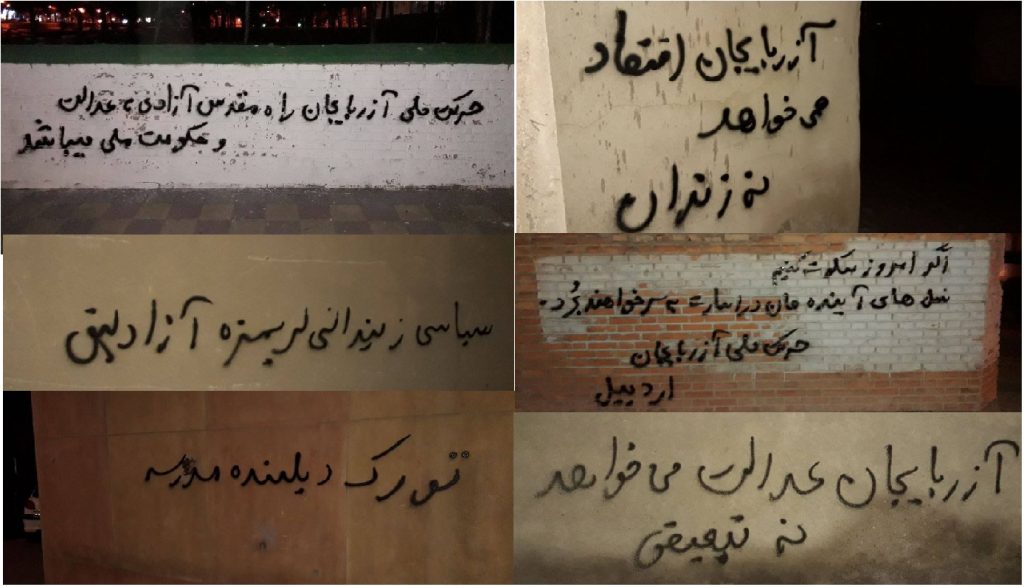 حرکت ملی آزربایجان راه مقدس آزادی، عدالت
و حکومت ملی میباشد
آزربایجان اقتصاد
می‌خواهد
نه زندان
سیاسی زیندانی لریمیزه آزادلیق
اگر امروز سکوت کنیم
نسل های آینده مان در اسارت به سر خواهند بُرد.
حرکت ملی آزربایجان
اردبیل
تورک دیلینده مدرسه
آزربایجان عدالت می خواهد
نه تبعیض